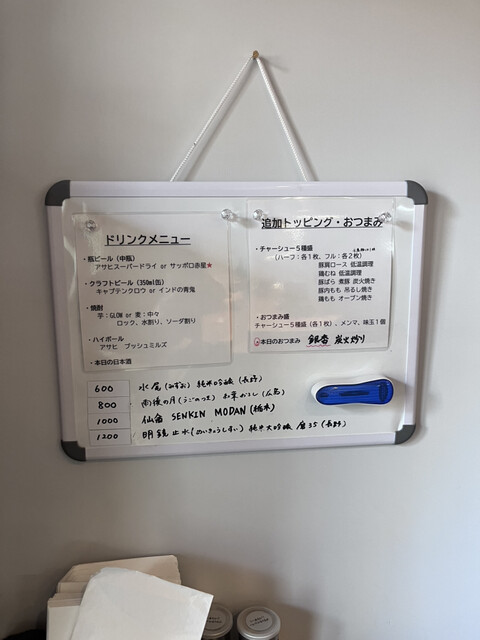 ドリンクメニュー
・瓶ビール（中瓶）
アサヒスーパードライ or サッポロ赤星★
・クラフトビール（350ml缶）
キャプテンクロウ or インドの青鬼
・焼酎
芋：GLOW or 麦：中々
ロック、水割り、ソーダ割り
・ハイボール
アサヒ ブッシュミルズ
・本日の日本酒
追加トッピング・おつまみ
・チャーシュー５種盛
（ハーフ：各１枚、フル：各２枚）
豚肩ロース 低温調理
鶏むね 低温調理
豚ばら 煮豚 炭火焼き
豚内もも 吊るし焼き
鶏もも オーブン焼き
・おつまみ盛
チャーシュー５種盛（各１枚）、メンマ、味玉１個
本日のおつまみ 銀杏 炭火炒り
600 水尾（みずお）純米吟醸（長野）
800 雨後の月（うごのつき）（広島）
1000 仙禽 SENKIN MODAN（栃木）
1200 明鏡止水（めいきょうしすい）純米大吟醸 磨35（長野）